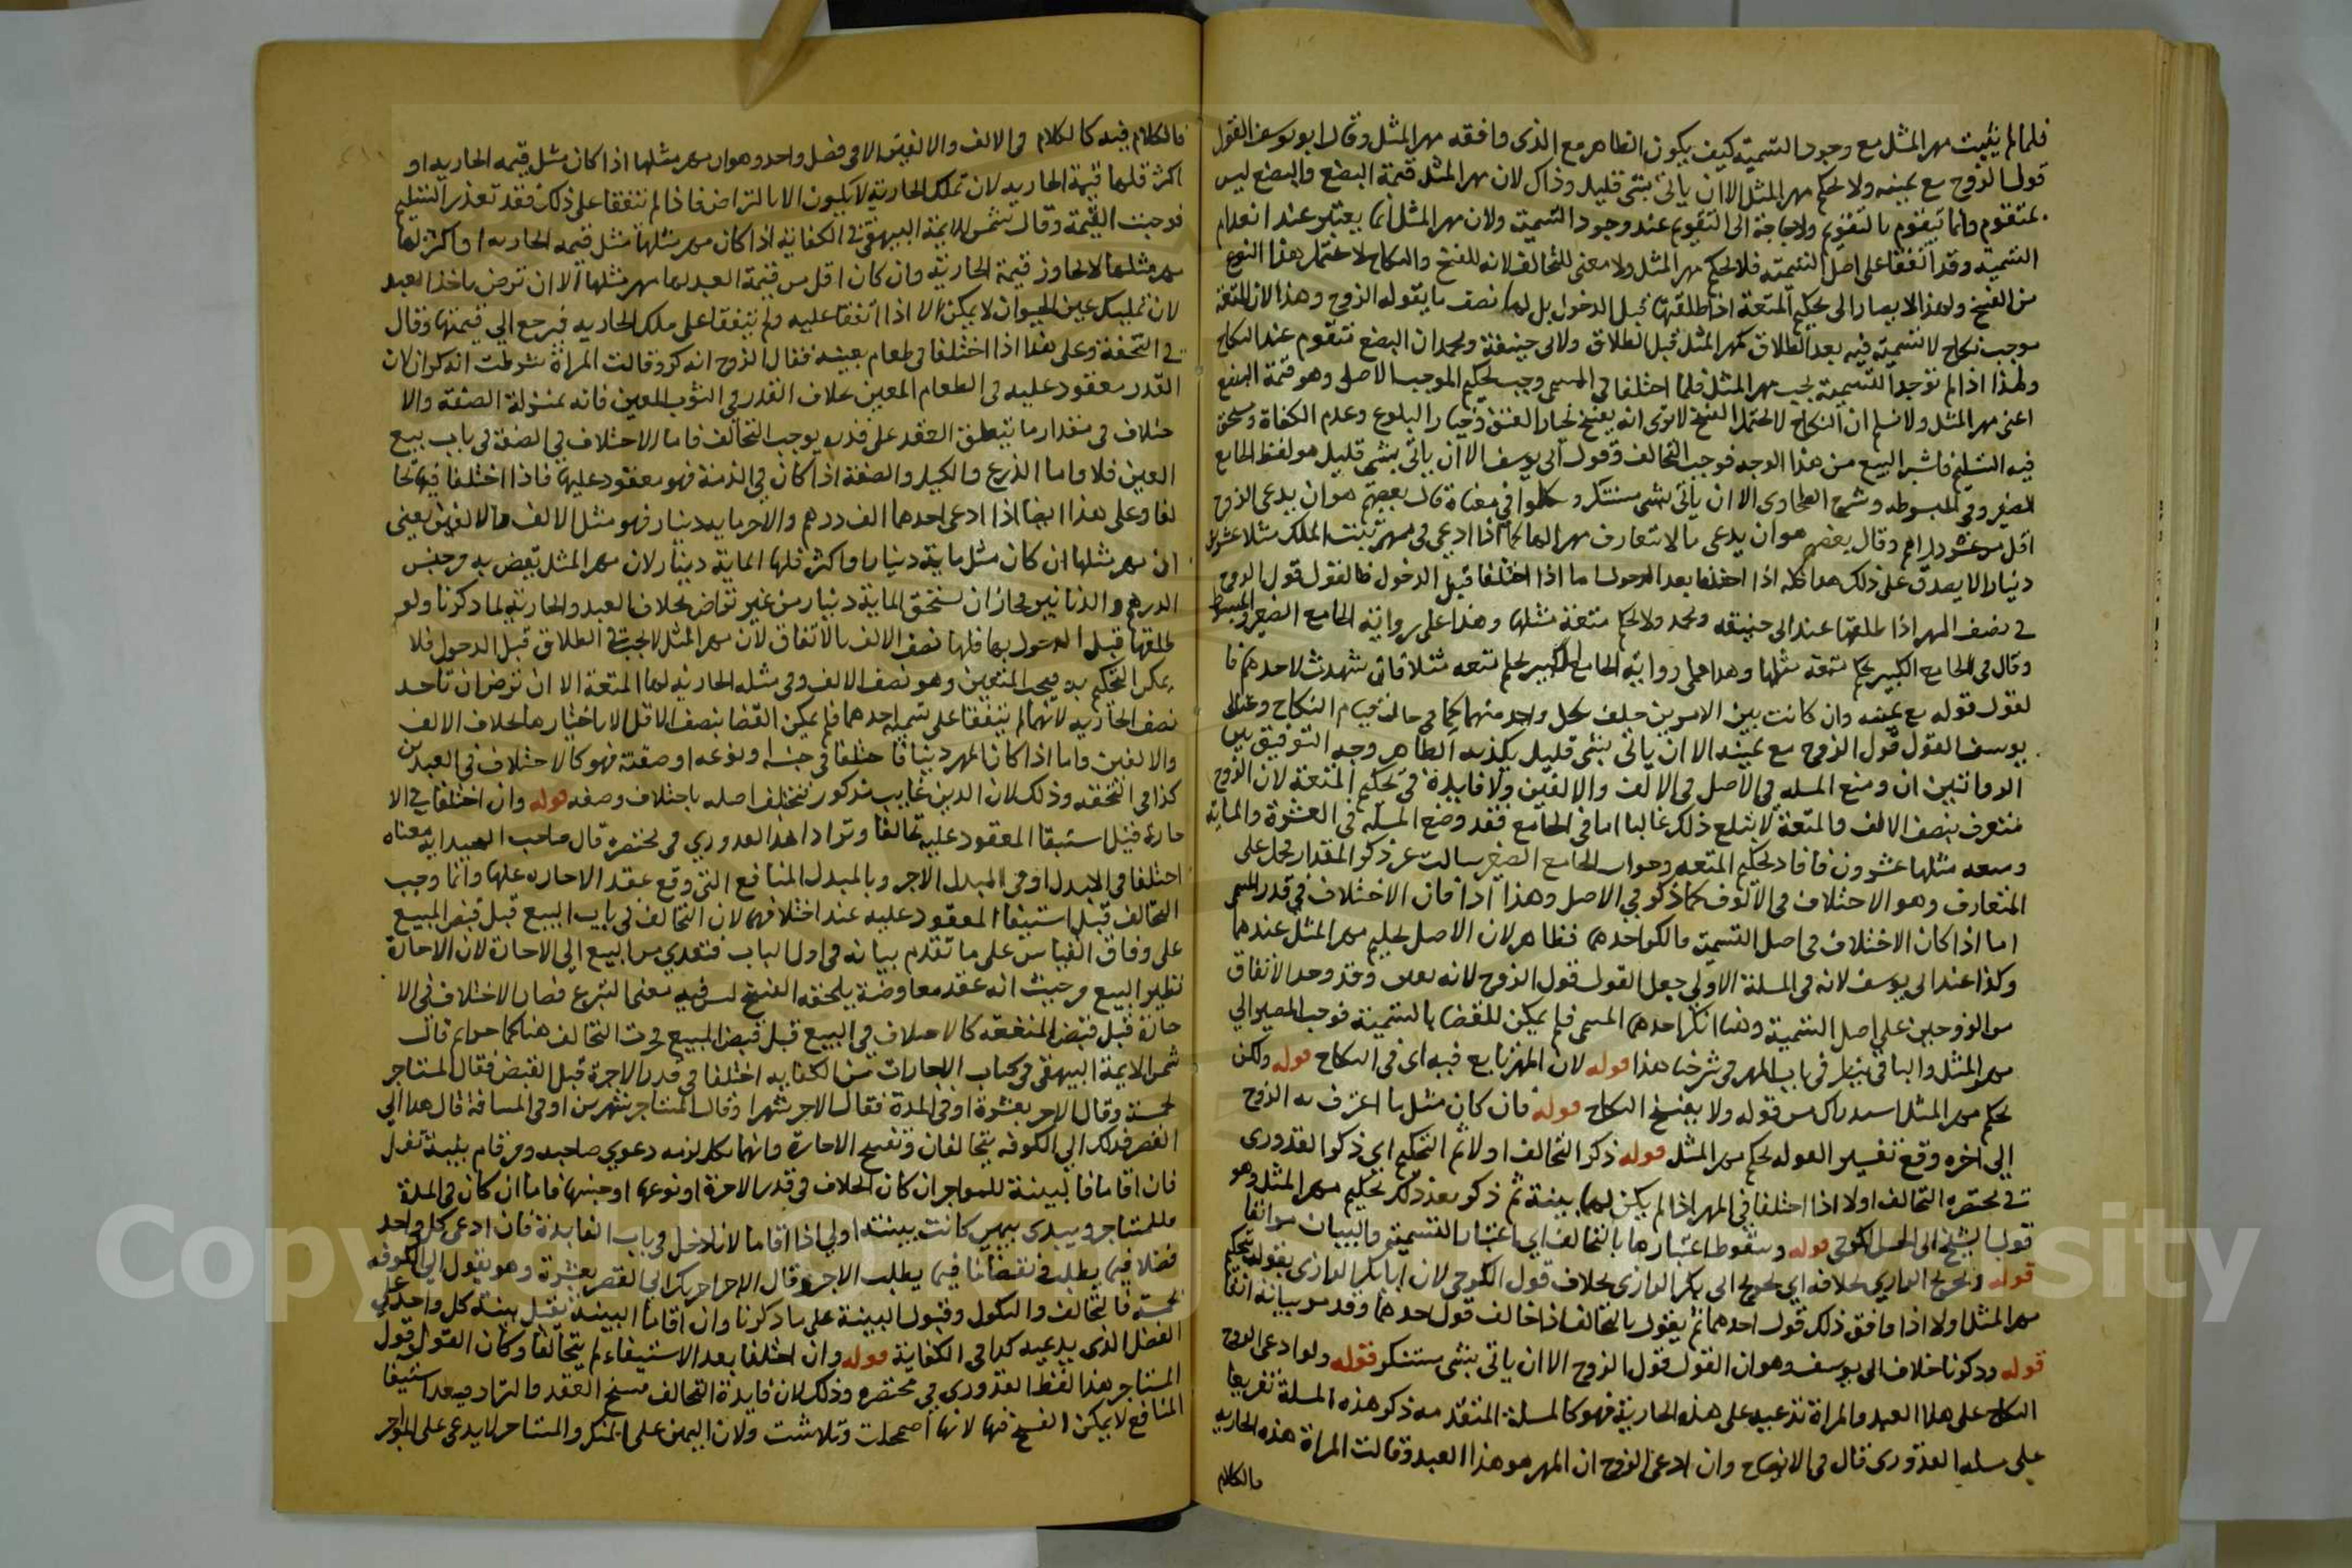 فلما لم يثبت مهر المثل مع وجود التسمية كيف يكون الظاهر مع الذى وافقه مهر المثل وقال ابو يوسف القول
قول الزوج مع يمينه ولا يحكم مهر المثل الا ان ياتى بشى قليل وذاك لان مهر المثل قيمة البضع والبضع ليس
بمتقوم وانما يتقوم بالتقويم ولا حاجة الى التقويم عند وجود التسمية ولان مهر المثل انما يعتبر عند انعدام
التسمية وقد اتفقا على اصل التسمية فلا يحكم مهر المثل ولا معنى للتحالف لانه للفسخ والنكاح لا يحتمل هذا النوع
من الفسخ ولهذا لا يصار الى تحكيم المتعة اذا طلقها قبل الدخول بل لها نصف ما يقوله الزوج وهذا لان المتعة
موجب نكاح لا تسمية فيه بعد الطلاق كمهر المثل قبل الطلاق ولابى حنيفة ومحمد ان البضع متقوم عند النكاح
ولهذا اذا لم توجد التسمية يجب مهر المثل فلما اختلفا فى المسمى وجب تحكيم الموجب الاصلى وهو قيمة البضع
اعنى مهر المثل ولا نسلم ان النكاح لا يحتمل الفسخ الا ترى انه يفسخ بخيار العتق وخيار البلوغ وعدم الكفاة ويتحقق
فيه التسليم فاشبه البيع من هذا الوجه فوجب التحالف وقول ابى يوسف الا ان ياتى بشى قليل هو لفظ الجامع
الصغير وفى المبسوط وشرح الطحاوى الا ان ياتى بشى مستنكر وتكلموا فى معناه قال بعضهم هو ان يدعى الزوج
اقل من عشرة دراهم وقال بعضهم هو ان يدعى ما لا يتعارف مهرا لها كما اذا ادعى فى مهر بنت الملك مثلا عشرين
دينارا لا يصدق على ذلك هذا كله اذا اختلفا بعد الدخول اما اذا اختلفا قبل الدخول فالقول قول الزوج
فى نصف المهر اذا طلقها عند ابى حنيفه ومحمد ولا يحكم متعة مثلها وهذا على رواية الجامع الصغير والمبسوط
وقال فى الجامع الكبير يحكم متعة مثلها وهذا على رواية الجامع الكبير يحكم متعه مثلا فان شهدت لاحدهما فا
لقول قوله مع يمينه وان كانت بين الامرين حلف كل واحد منهما كما فى حال قيام النكاح وعند ابى
يوسف القول قول الزوج مع يمينه الا ان ياتى بشى قليل يكذبه الظاهر وجه التوفيق بين
الروايتين ان وضع المسله فى الاصل فى الالف والالفين ولا فايدة فى تحكيم المتعة لان الزوج
معترف بنصف الالف والمتعة لا تبلغ ذلك غالبا اما فى الجامع فقد وضع المسله فى العشرة والماية
ومتعه مثلها عشرون فافاد تحكيم المتعه وجواب الجامع الصغير ساكت عن ذكر المقدار فحمل على
المتعارف وهو الاختلاف فى الالوف كما ذكر فى الاصل وهذا اذا كان الاختلاف فى قدر المسمى
اما اذا كان الاختلاف فى اصل التسمية فانكر احدهما فظاهر لان الاصل تحكيم مهر المثل عندهما
وكذا عند ابى يوسف لانه فى المسلة الاولى جعل القول قول الزوج لانه وقد وجد الاتفاق
من الزوجين على اصل التسمية وهنا انكر احدهما المسمى فلم يمكن للقضا بالتسمية فوجب المصير الى
مهر المثل والباقى ينظر فى باب المهر فى شرحنا هذا قوله لان المهر تابع فيه اى فى النكاح قوله ولكن
يحكم مهر المثل استدراك من قوله ولا يفسخ النكاح قوله فان كان مثل ما اعترف به الزوج
الى اخره وقع تفسيرا لقوله يحكم مهر المثل قوله ذكر التحالف اولا ثم التحكيم اى ذكر القدورى
فى مختصره التحالف اولا اذا اختلفا فى المهر اذا لم يكن لهما بينة ثم ذكر بعد ذلك تحكيم مهر المثل وهو
قول الشيخ ابى الحسن الكرخى قوله وسقوط اعتبارها بالتحالف اى اعتبار التسمية والبيان مر انفا
قوله وتخريج الرازى بخلافه اى تخريج ابى بكر الرازى بخلاف قول الكرخى لان ابا بكر الرازى يقول بتحكيم
مهر المثل اولا اذا وافق ذلك قول احدهما ثم يقول بالتحالف اذا خالف قول احدهما وقد مر بيانه انفا
قوله وذكرنا خلاف ابى يوسف وهو ان القول قول الزوج الا ان ياتى بشى مستنكر قوله ولو ادعى الزوج
النكاح على هذا العبد والمراة تدعيه على هذه الجارية فهو كالمسلة المتقدمه ذكر هذه المسلة تفريعا
على مسلة القدورى قال فى الايضاح وان ادعى الزوج ان المهر هو هذا العبد وقالت المراة هذه الجاريه
فالكلام
فالكلام فيه كالكلام فى الالف والالفين الا فى فصل واحد وهو ان مهر مثلها اذا كان مثل قيمه الجاريه او
اكثر فلها قيمة الجاريه لان تملك الجارية لا يكون الا بالتراضى فاذا لم يتفقا على ذلك فقد تعذر التسليم
فوجبت القيمة وقال شمس الايمة البيهقى فى الكفايه اذا كان مهر مثلها مثل قيمه الجاريه او اكثر لها
مهر مثلها لا يجاوز قيمة الجارية وان كان اقل من قيمة العبد لها مهر مثلها الا ان ترضى باخذ العبد
لان تمليك عين الحيوان لا يمكن الا اذا اتفقا عليه ولم يتفقا على ملك الجاريه فيرجع الى قيمتها وقال
فى التحفة وعلى هذا اذا اختلفا فى طعام بعينه فقال الزوج انه كر وقالت المراة شرطت انه كران لان
القدر معقود عليه فى الطعام المعين بخلاف القدر فى الثوب المعين فانه بمنزلة الصفة والا
ختلاف فى مقدار ما يتعلق العقد على قدره يوجب التحالف فاما الاختلاف فى الصفة فى باب بيع
العين فلا واما الذرع والكيل والصفة اذا كان فى الذمة فهو معقود عليها فاذا اختلفا فيها تحا
لفا وعلى هذا ايضا اذا ادعى احدهما الف درهم والاخر مايه دينار فهو مثل الالف والالفين يعنى
ان مهر مثلها ان كان مثل ماية دينار او اكثر فلها الماية دينار لان مهر المثل يقضى به من جنس
الدرهم والدنانير فجاز ان تستحق الماية دينار من غير تراض بخلاف العبد والجارية لما ذكرنا ولو
طلقها قبل الدخول بها فلها نصف الالف بالاتفاق لان مهر المثل لا يجب فى الطلاق قبل الدخول فلا
يمكن التحكيم به فيجب المتيقن وهو نصف الالف وفى مثله الجارية لها المتعة الا ان ترضى ان تاخذ
نصف الجاريه لانهما لم يتفقا على تسمية احدهما فلم يمكن القضا بنصف الاقل الا باختيارها بخلاف الالف
والالفين واما اذا كان المهر دينا فاختلفا فى جنسه او نوعه او صفته فهو كالاختلاف فى العبدين
كذا فى التحفه وذلك لان الدين غايب مذكور يختلف اصله باختلاف وصفه قوله وان اختلفا فى الا
جارة قبل استيفا المعقود عليه تحالفا وترادا هذا لفظ القدورى فى مختصره قال صاحب الهدايه معناه
اختلفا فى البدل او فى المبدل الاجر وبالمبدل المنافع التى وقع عقد الاجاره عليها وانما وجب
التحالف قبل استيفا المعقود عليه عند اختلافهما لان التحالف فى باب البيع قبل قبض المبيع
على وفاق القياس على ما تقدم بيانه فى اول الباب فتعدى من البيع الى الاجارة لان الاجارة
نظير البيع من حيث انه عقد معاوضة يلحقه الفسخ ليس فيه معنى التبرع فصار الاختلاف فى الا
جارة قبل قبض المنفعه كالاختلاف فى البيع قبل قبض المبيع فجرى التحالف هنا كما جرى ثم قال
شمس الايمة البيهقى فى كتاب الاجارات من الكفايه اختلفا فى قدر الاجرة قبل القبض فقال المستاجر
بخمسة وقال الاجر بعشرة او فى المدة فقال الاجر شهرا وقال المستاجر شهرين او فى المسافة قال هذا الى
القصر وذلك الى الكوفه يتحالفان وتفسخ الاجارة وايهما نكل لزمه دعوى صاحبه ومن قام بينة تقبل
فان اقاما فا لبينة للمواجر ان كان الخلاف فى قدر الاجرة او نوعها او جنسها فاما ان كان فى المدة
فللمستاجر ويبدى بيمين كانت بينته اولى اذا اقاما لانه ادخل فى باب الفايدة فان ادعى كل واحد
فضلا فيما يطلب فى نقصانا فيما يطلب الاجر وقال الاجر اجرتك الى القصر بعشرة وهو يقول الى الكوفه
بخمسة فالتحالف والنكول وقبول البينة على ما ذكرنا وان اقاما البينة يقبل بينة كل واحد على
الفضل الذى يدعيه كذا فى الكفاية قوله وان اختلفا بعد الاستيفاء لم يتحالفا وكان القول قول
المستاجر هذا لفظ القدورى فى مختصره وذلك لان فايدة التحالف فسخ العقد والتراد وبعد استيفا
المنافع لا يمكن الفسخ فيها لانها اضمحلت وتلاشت ولان اليمين على المنكر والمستاجر لا يدعى على المواجر
Copy King sity